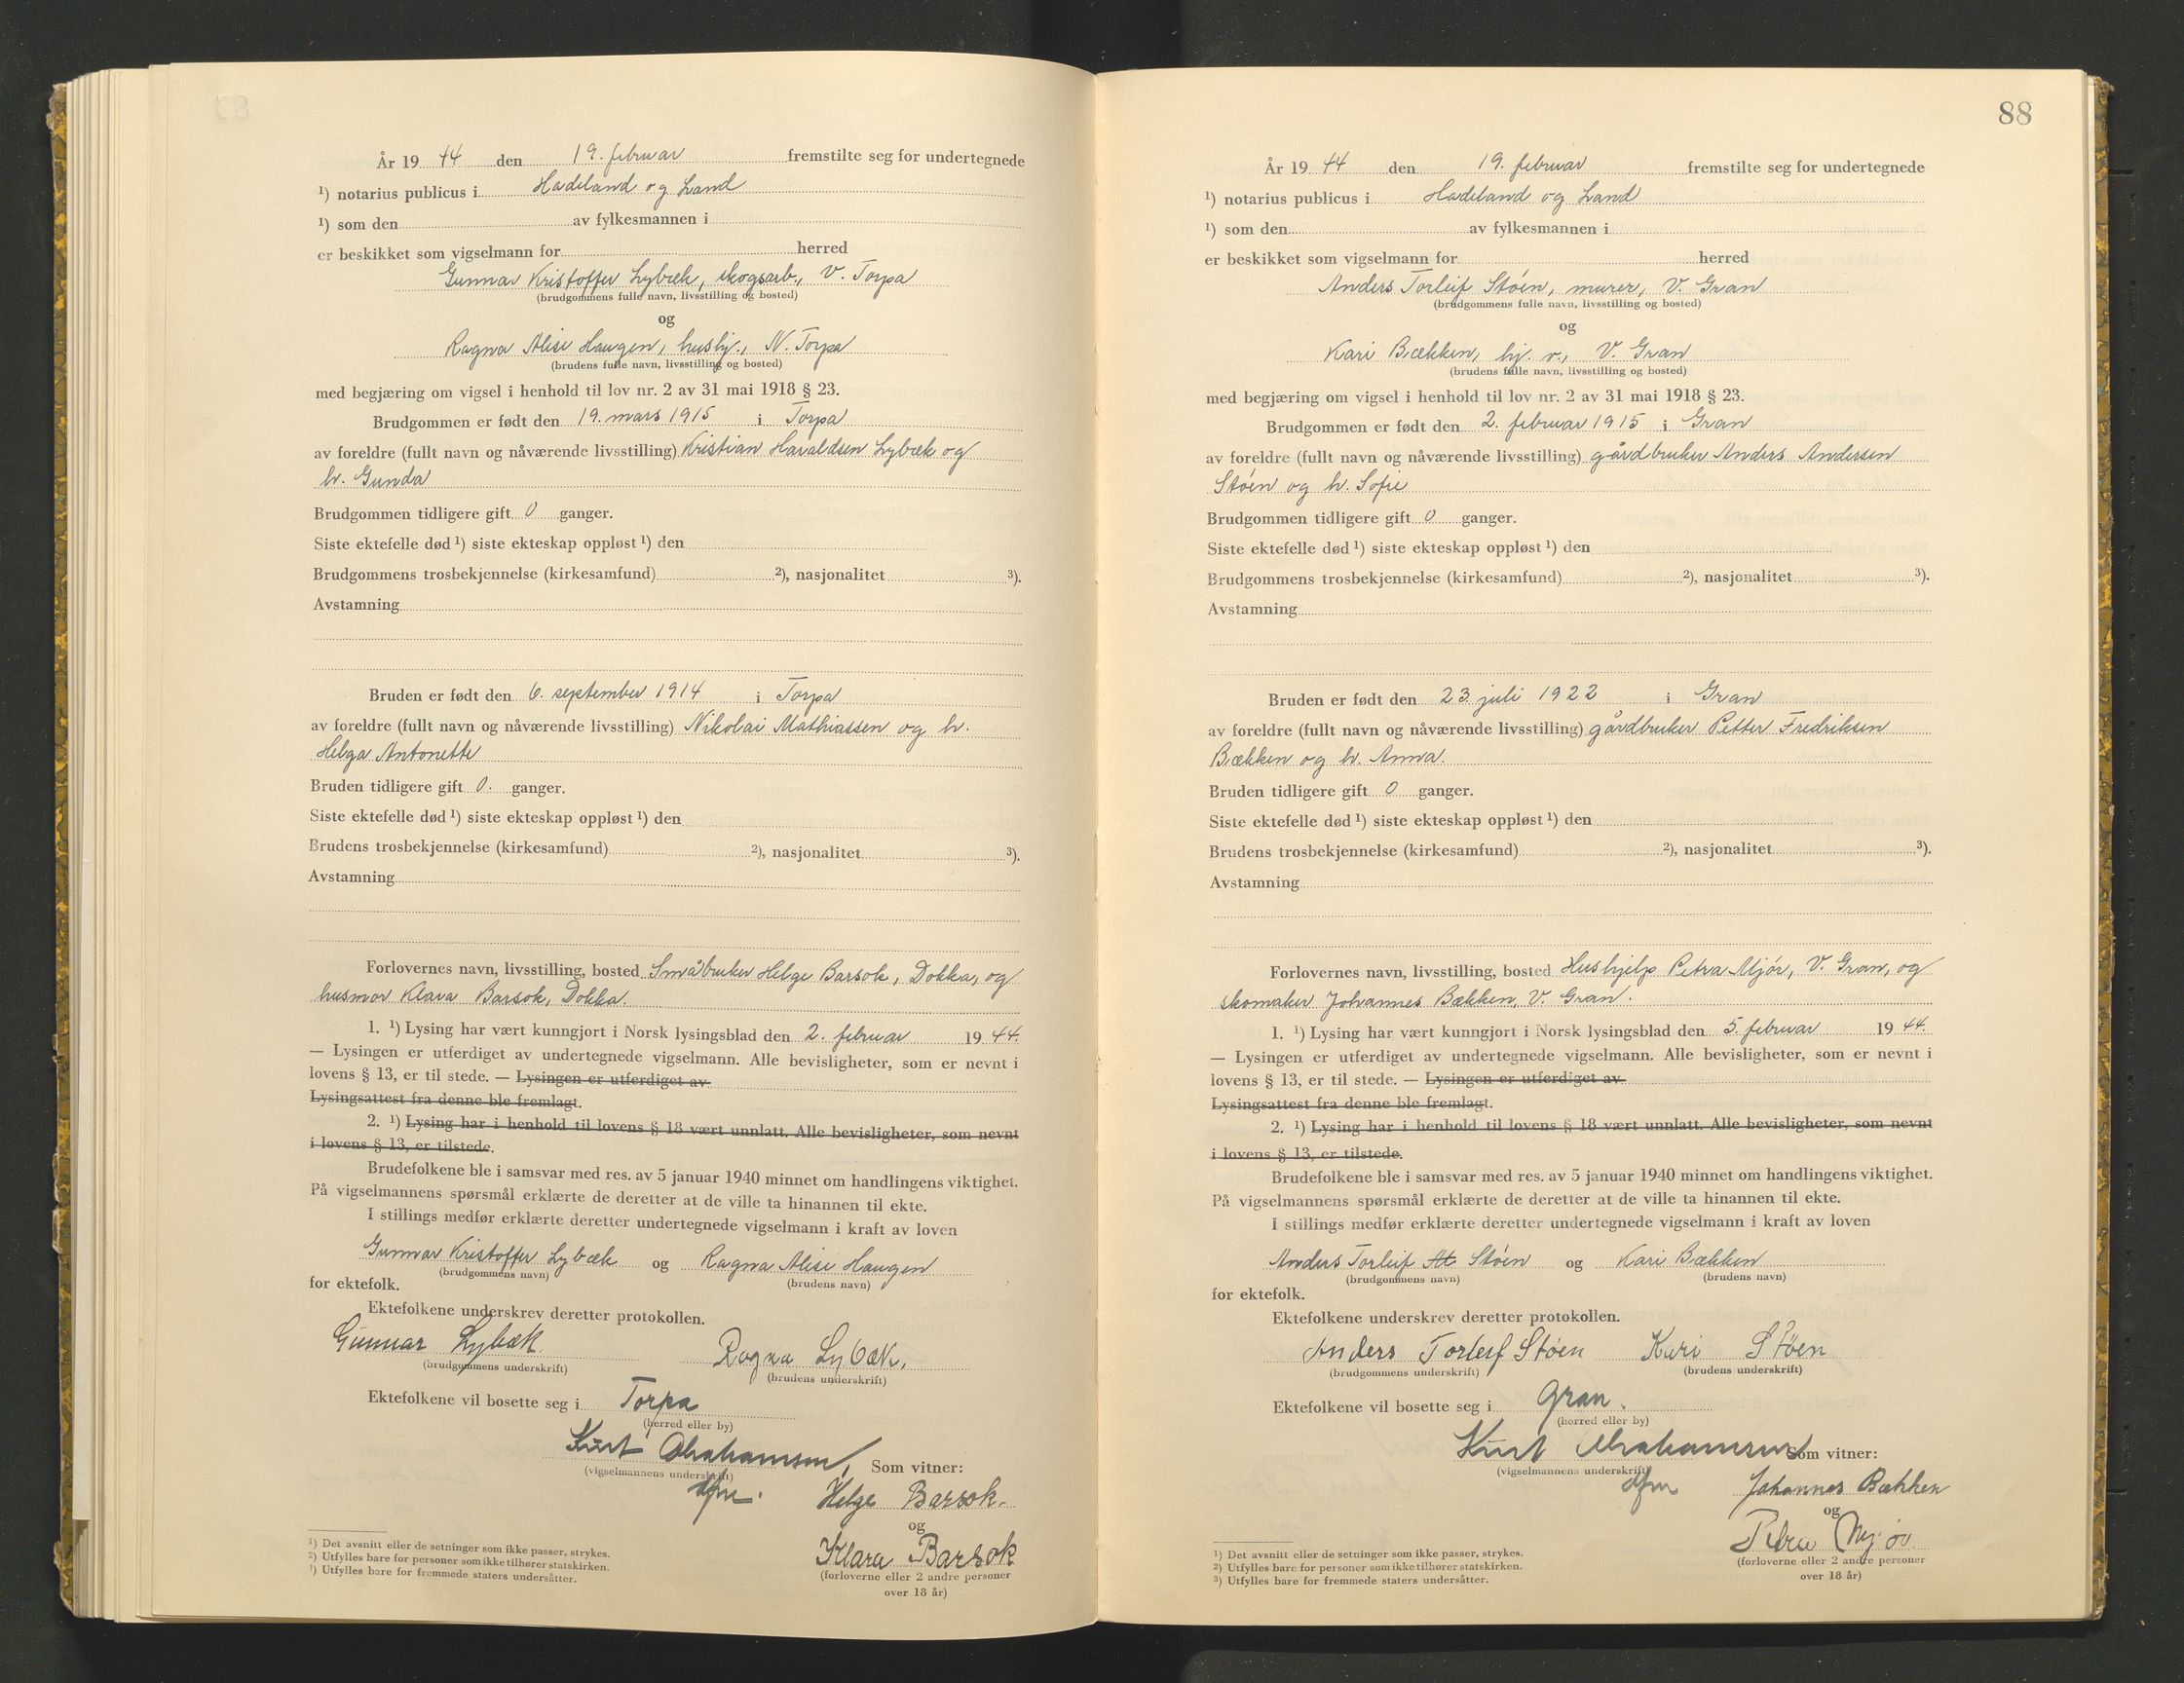 År 19 44 den 19. februar fremstilte seg for undertegnede
¹) notarius publicus i Hadeland og Land
¹) som den av fylkesmannen i
er beskikket som vigselmann for herred
Gunnar Kristoffer Lybæk, skogsarb., V. Torpa
(brudgommens fulle navn, livsstilling og bosted)
og
Ragna Alise Haugen, hushj., N. Torpa
(brudens fulle navn, livsstilling og bosted)
med begjæring om vigsel i henhold til lov nr. 2 av 31 mai 1918 § 23.
Brudgommen er født den 19. mars 1915 i Torpa
av foreldre (fullt navn og nåværende livsstilling) Kristian Haraldsen Lybæk og
h. Gunda
Brudgommen tidligere gift 0 ganger.
Siste ektefelle død ¹) siste ekteskap oppløst ¹) den
Brudgommens trosbekjennelse (kirkesamfund) ²), nasjonalitet ³).
Avstamning
Bruden er født den 6. september 1914 i Torpa
av foreldre (fullt navn og nåværende livsstilling) Nikolai Mathiassen og h.
Helga Antonette
Bruden tidligere gift 0. ganger.
Siste ektefelle død ¹) siste ekteskap oppløst ¹) den
Brudens trosbekjennelse (kirkesamfund) ²), nasjonalitet ³).
Avstamning
Forlovernes navn, livsstilling, bosted Småbruker Helge Barsok, Dokka, og
husmor Klara Barsok, Dokka.
1. ¹) Lysing har vært kunngjort i Norsk lysingsblad den 2. februar 19 44.
— Lysingen er utferdiget av undertegnede vigselmann. Alle bevisligheter, som er nevnt i
lovens § 13, er til stede. — Lysingen er utferdiget av
Lysingsattest fra denne ble fremlagt.
2. ¹) Lysing har i henhold til lovens § 18 vært unnlatt. Alle bevisligheter, som nevnt
i lovens § 13, er tilstede.
Brudefolkene ble i samsvar med res. av 5 januar 1940 minnet om handlingens viktighet.
På vigselmannens spørsmål erklærte de deretter at de ville ta hinannen til ekte.
I stillings medfør erklærte deretter undertegnede vigselmann i kraft av loven
Gunnar Kristoffer Lybæk og Ragna Alise Haugen
(brudgommens navn) (brudens navn)
for ektefolk.
Ektefolkene underskrev deretter protokollen.
Gunnar Lybæk Ragna Lybæk.
(brudgommens underskrift) (brudens underskrift)
Ektefolkene vil bosette seg i Torpa
(herred eller by)
Kurt Abrahamsen,
(vigselmannens underskrift) Som vitner:
Helge Barsok.
og
Klara Barsok
(forloverne eller 2 andre personer
over 18 år)
¹) Det avsnitt eller de setninger som ikke passer, strykes.
²) Utfylles bare for personer som ikke tilhører statskirken.
³) Utfylles bare for fremmede staters undersåtter.
88
År 19 44 den 19. februar fremstilte seg for undertegnede
¹) notarius publicus i Hadeland og Land
¹) som den av fylkesmannen i
er beskikket som vigselmann for herred
Anders Torleif Stóen, murer, V. Gran
(brudgommens fulle navn, livsstilling og bosted)
og
Kari Bækken, hj. v., V. Gran
(brudens fulle navn, livsstilling og bosted)
med begjæring om vigsel i henhold til lov nr. 2 av 31 mai 1918 § 23.
Brudgommen er født den 2. februar 1915 i Gran
av foreldre (fullt navn og nåværende livsstilling) gårdbruker Anders Andersen
Stóen og h. Sofie
Brudgommen tidligere gift 0 ganger.
Siste ektefelle død ¹) siste ekteskap oppløst ¹) den
Brudgommens trosbekjennelse (kirkesamfund) ²), nasjonalitet ³).
Avstamning
Bruden er født den 23. juli 1922 i Gran
av foreldre (fullt navn og nåværende livsstilling) gårdbruker Petter Fredriksen
Bækken og h. Anna.
Bruden tidligere gift 0 ganger.
Siste ektefelle død ¹) siste ekteskap oppløst ¹) den
Brudens trosbekjennelse (kirkesamfund) ²), nasjonalitet ³).
Avstamning
Forlovernes navn, livsstilling, bosted Hushjelp Petra Mjór, V. Gran, og
skomaker Johannes Bækken, V. Gran.
1. ¹) Lysing har vært kunngjort i Norsk lysingsblad den 5. februar 19 44.
— Lysingen er utferdiget av undertegnede vigselmann. Alle bevisligheter, som er nevnt i
lovens § 13, er til stede. — Lysingen er utferdiget av
Lysingsattest fra denne ble fremlagt.
2. ¹) Lysing har i henhold til lovens § 18 vært unnlatt. Alle bevisligheter, som nevnt
i lovens § 13, er tilstede.
Brudefolkene ble i samsvar med res. av 5 januar 1940 minnet om handlingens viktighet.
På vigselmannens spørsmål erklærte de deretter at de ville ta hinannen til ekte.
I stillings medfør erklærte deretter undertegnede vigselmann i kraft av loven
Anders Torleif Stóen og Kari Bækken
(brudgommens navn) (brudens navn)
for ektefolk.
Ektefolkene underskrev deretter protokollen.
Anders Torleif Stóen Kari Stöen
(brudgommens underskrift) (brudens underskrift)
Ektefolkene vil bosette seg i Gran.
(herred eller by)
Kurt Abrahamsen
(vigselmannens underskrift) Som vitner:
Johannes Bækken
og
Petra Mjór
(forloverne eller 2 andre personer
over 18 år)
¹) Det avsnitt eller de setninger som ikke passer, strykes.
²) Utfylles bare for personer som ikke tilhører statskirken.
³) Utfylles bare for fremmede staters undersåtter.